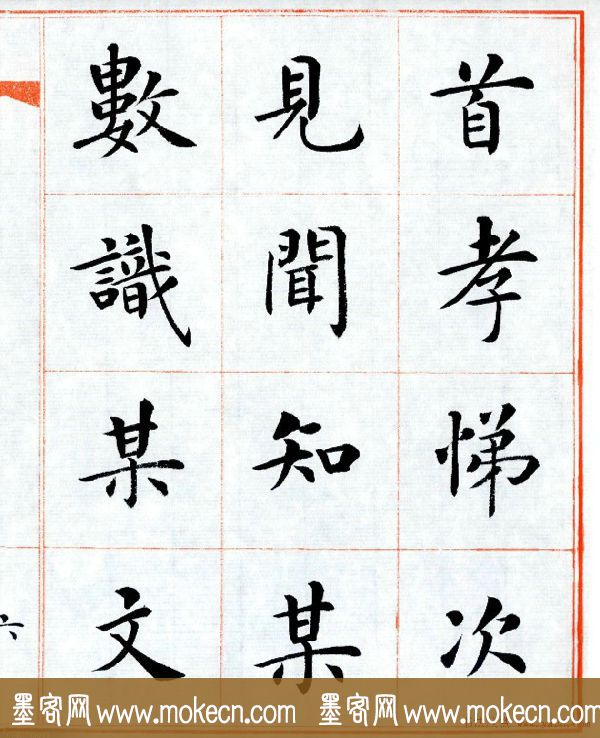 首孝悌次
見聞知某
數識某文
六
墨客网 www.mokecn.com 墨客网 www.mokecn.com